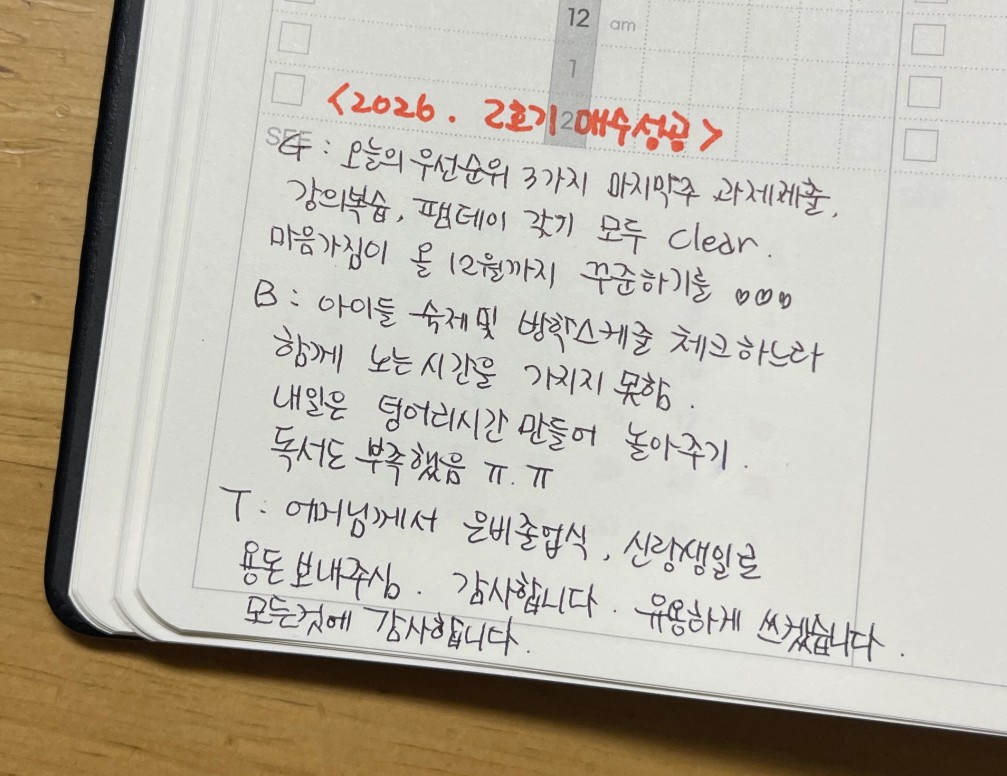 12 am
1
2
<2026. 2호기 매수성공>
SEE
G : 오늘의 우선순위 3가지 마지막주 과제제출,
강의복습, 팸데이 갖기 모두 clear.
마음가짐이 올 12월까지 꾸준하기를 ♡♡♡
B : 아이들 숙제및 방학스케줄 체크하느라
함께 노는시간을 가지지 못함.
내일은 덩어리시간 만들어 놀아주기.
독서도 부족했음 ㅠ.ㅠ
T : 어머님께서 은비졸업식, 신랑생일로
용돈 보내주심. 감사합니다. 유용하게 쓰겠습니다.
모든것에 감사합니다.